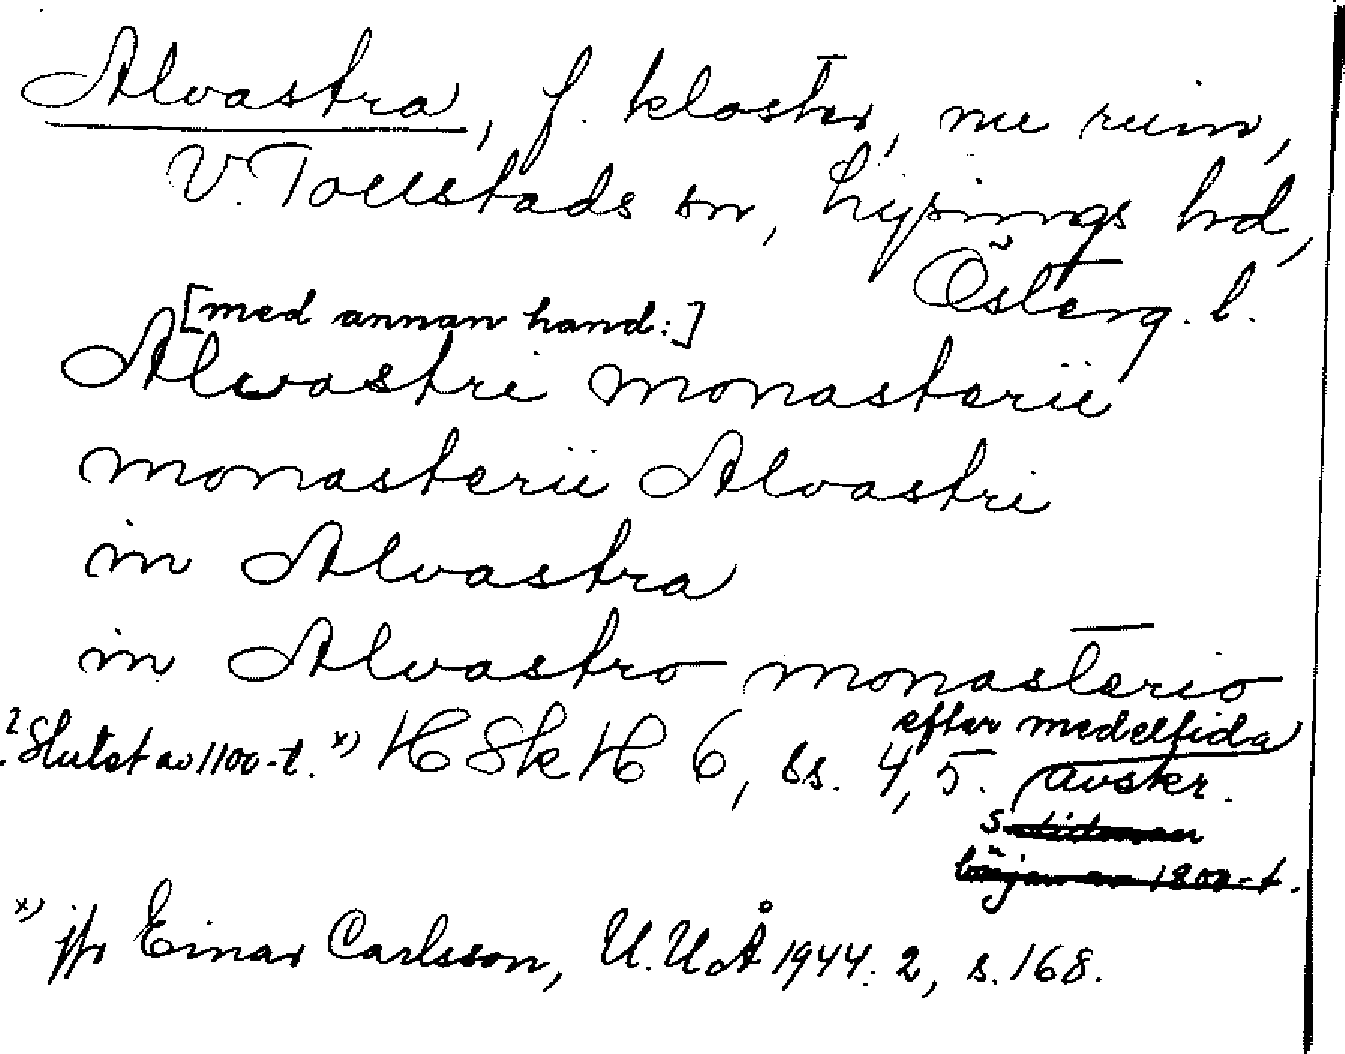 Alvastra, f. kloster, nu ruin,
V. Tollstads sn, Lysings hd,
Österg. l.
[med annan hand:]
Alwastri monasterii
monasterii Alvastri
in Alvastra
in Alvastro monasterio
? Slutet av 1100-t. x) HSkH 6, ss. 4, 5. efter medeltida
avskr.
början av 1200-t.
x) jfr Einar Carlsson, U.U.Å 1944: 2, s. 168.